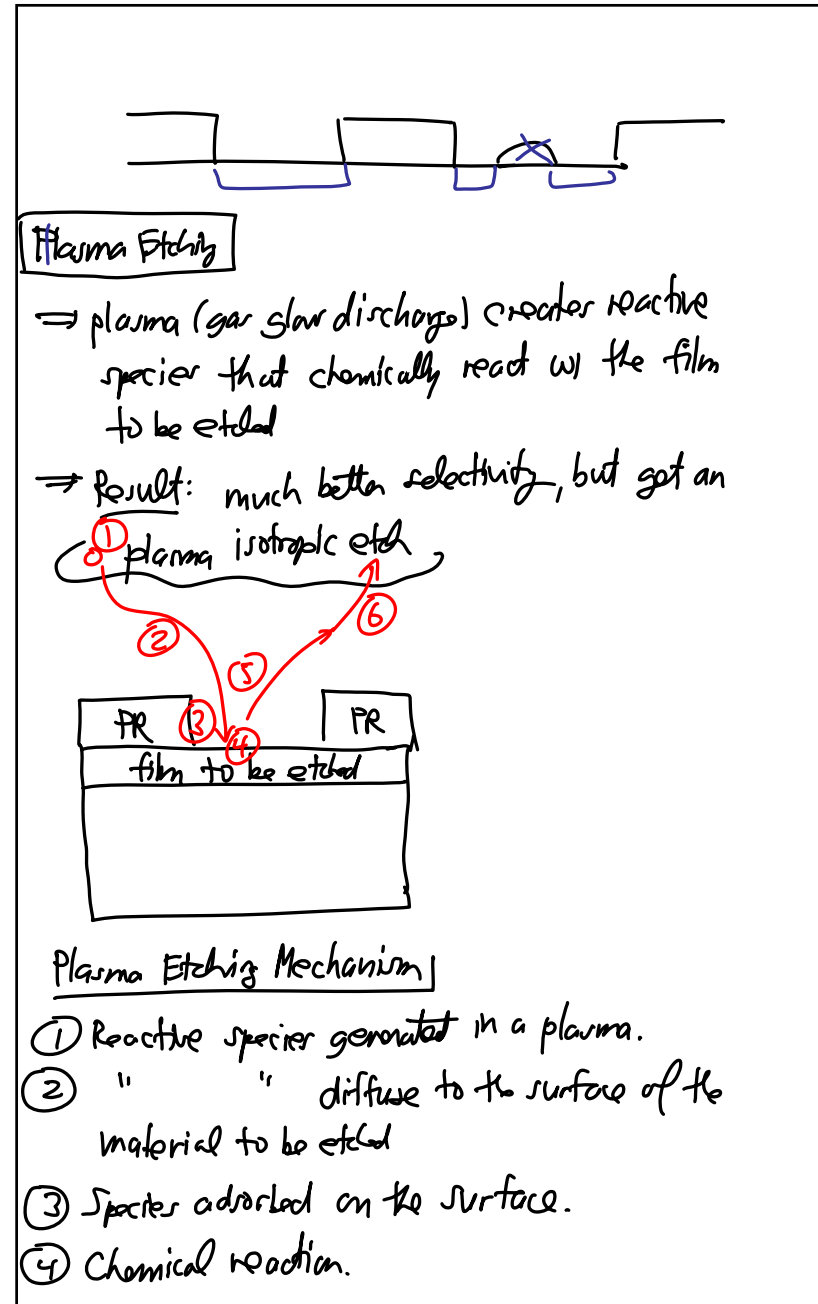 Plasma Etching
⇒ plasma (gas glow discharge) creates reactive
species that chemically react w/ the film
to be etched
⇒ Result: much better selectivity, but get an
isotropic etch
① plasma
②
⑥
⑤
PR ③ PR
④
film to be etched
Plasma Etching Mechanism
① Reactive species generated in a plasma.
② " " diffuse to the surface of the
material to be etched
③ Species adsorbed on the surface.
④ Chemical reaction.